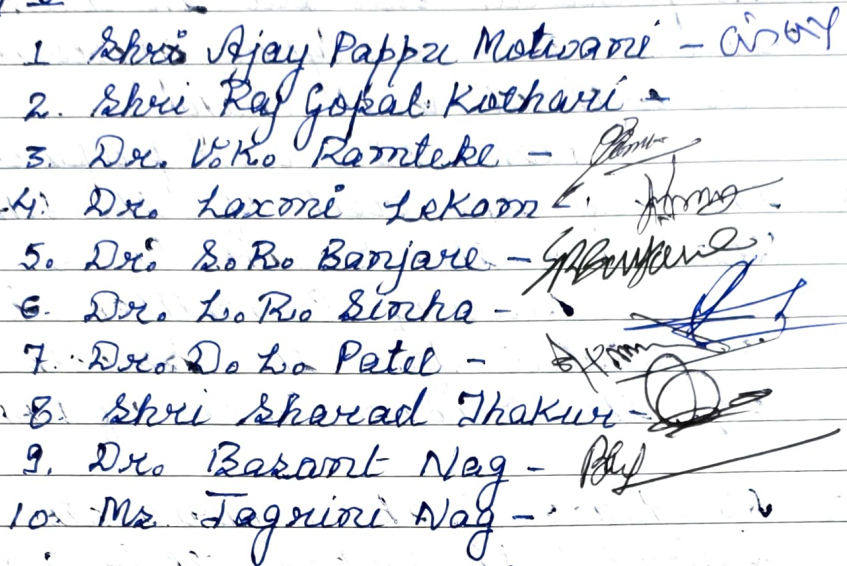 1 Shri Ajay Pappu Motwani -
2. Shri Raj Gopal Kothari -
3. Dr. V.K. Ramteke -
4. Dr. Laxmi Lekam -
5. Dr. S.R. Banjare - SRBanjare
6. Dr. L.R. Sinha -
7. Dr. D.L. Patel -
8. Shri Sharad Thakur -
9. Dr. Basant Nag -
10. Ms Jagrini Nag -